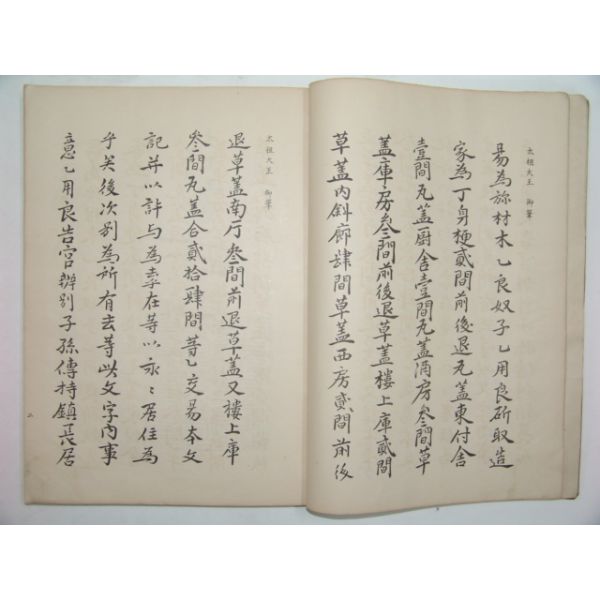 太祖大王 御筆
昜為旀材木乙良奴子乙用良斫取造
家為丁身梗貳間前後退瓦蓋東付舍
壹間瓦蓋厨舍壹間瓦蓋酒房叁間草
蓋庫房叁間前後退草蓋樓上庫貳間
草蓋內斜廊肆間草蓋西房貳間前後
太祖大王 御筆
退草蓋南厅叁間前退草蓋又樓上庫
叁間瓦蓋合貳拾肆間等乙交昜本文
記并以許与為臥乎在等以永〻居住為
乎矣後次別為所有去等此文字內事
意乙用良告官辨別子孫傳持鎮長居